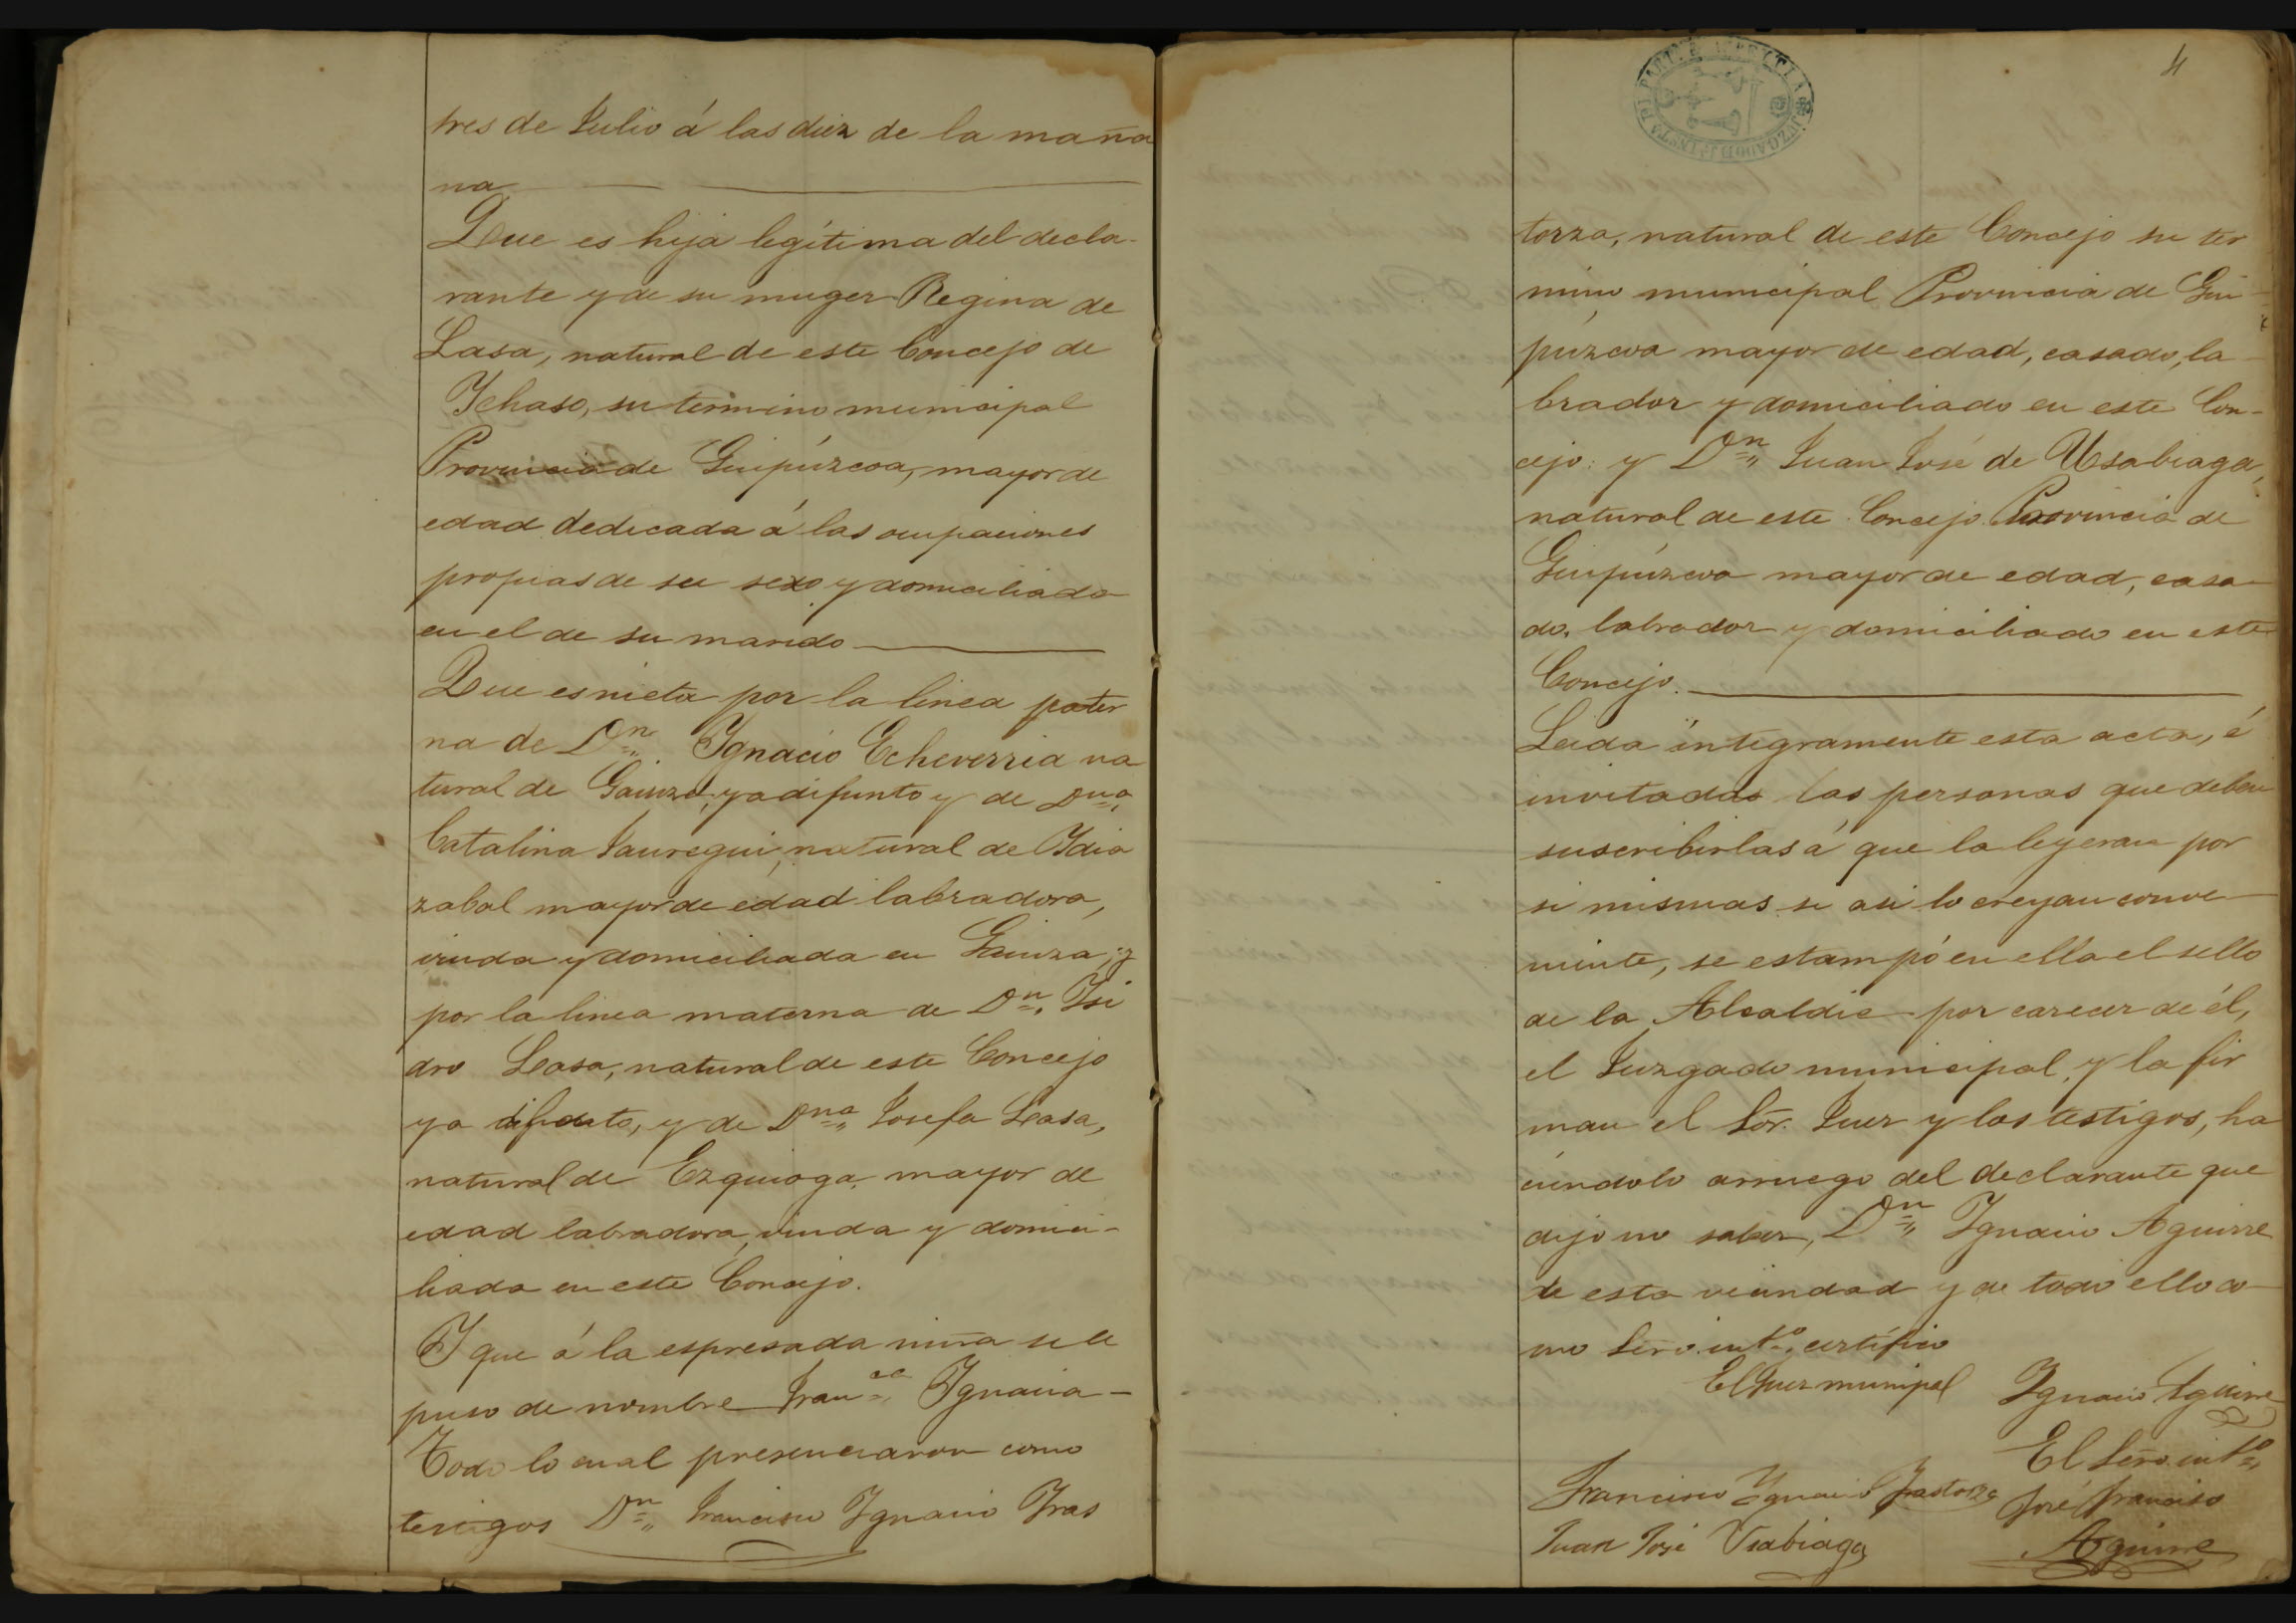 tres de Julio á las diez de la maña
na
Que es hija legítima del decla-
rante y de su muger Regina de
Lasa, natural de este Concejo de
Ichaso, su termino municipal
Provincia de Guipúzcoa, mayor de
edad dedicada á las ocupaciones
propias de su sexo y domiciliada
en el de su marido
Que es nieta por la linea pater
na de Dn. Ignacio Echeverria na
tural de Gainza, ya difunto y de Dna.
Catalina Jauregui, natural de Idia
zabal mayor de edad labradora,
viuda y domiciliada en Gainza, y
por la linea materna de Dn. Isi
dro Lasa, natural de este Concejo
ya difunto, y de Dna. Josefa Lasa,
natural de Ezquioga, mayor de
edad labradora, viuda y domici-
liada en este Concejo.
Y que á la espresada niña se le
puso de nombre Franca. Ignacia
Todo lo cual presenciaron como
testigos Dn. Francisco Ignacio Iras
4
PART. DE AZPEITIA JUZGADO DE 1ª INSTA. DEL
torza, natural de este Concejo su ter
mino municipal Provincia de Gui
púzcoa mayor de edad, casado, la
brador y domiciliado en este Con-
cejo: y Dn. Juan José de Usabiaga,
natural de este Concejo Provincia de
Guipúzcoa mayor de edad, casa
do, labrador y domiciliado en este
Concejo.
Leida íntegramente esta acta, é
invitadas las personas que deben
suscribirlas á que la leyeran por
si mismas si asi lo creyan conve
niente, se estampó en ella el sello
de la Alcaldia por carecer de él,
el Juzgado municipal, y la fir
man el Sor. Juez y los testigos, ha
ciendolo arruego del declarante que
dijo no saber, Dn. Ignacio Aguirre
de esta vecindad y de todo ello co
mo Seño. into. certifico
El Juez municipal Ignacio Aguirre
El Seño. into.
Francisco Ygnacio Irastorza José Francisco
Juan José Usabiaga Aguirre